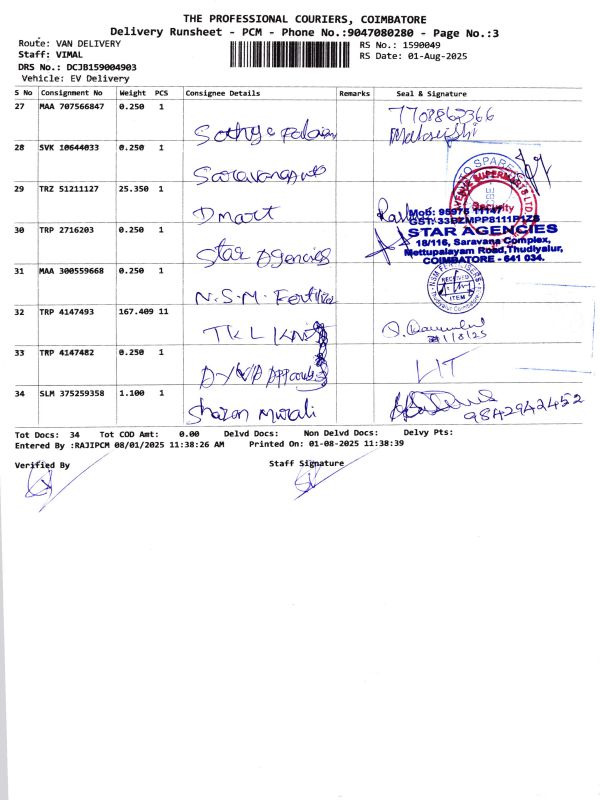 THE PROFESSIONAL COURIERS, COIMBATORE
Delivery Runsheet - PCM - Phone No.:9047080280 - Page No.:3
Route: VAN DELIVERY
RS No.: 1590049
Staff: VIMAL
RS Date: 01-Aug-2025
DRS No.: DCJB159004903
Vehicle: EV Delivery
S No Consignment No Weight PCS Consignee Details Remarks Seal & Signature
27 MAA 707566847 0.250 1
7708862366
28 SVK 10644033 0.250 1
29 TRZ 51211127 25.350 1
Dmart
Security
Mob: 95976 11147
GST: 33BZMPP8111P1ZS
STAR AGENCIES
18/116, Saravana Complex,
Mettupalayam Road, Thudiyalur,
COIMBATORE - 641 034.
30 TRP 2716203 0.250 1
Star Agencies
31 MAA 300559668 0.250 1
N.S.M. Fertilizer
RECEIVED
ITEM
32 TRP 4147493 167.409 11
TKL Knits
1/8/25
33 TRP 4147482 0.250 1
34 SLM 375259358 1.100 1
Sharon Murali
9842942452
Tot Docs: 34 Tot COD Amt: 0.00 Delvd Docs: Non Delvd Docs: Delvy Pts:
Entered By :RAJIPCM 08/01/2025 11:38:26 AM Printed On: 01-08-2025 11:38:39
Verified By
Staff Signature